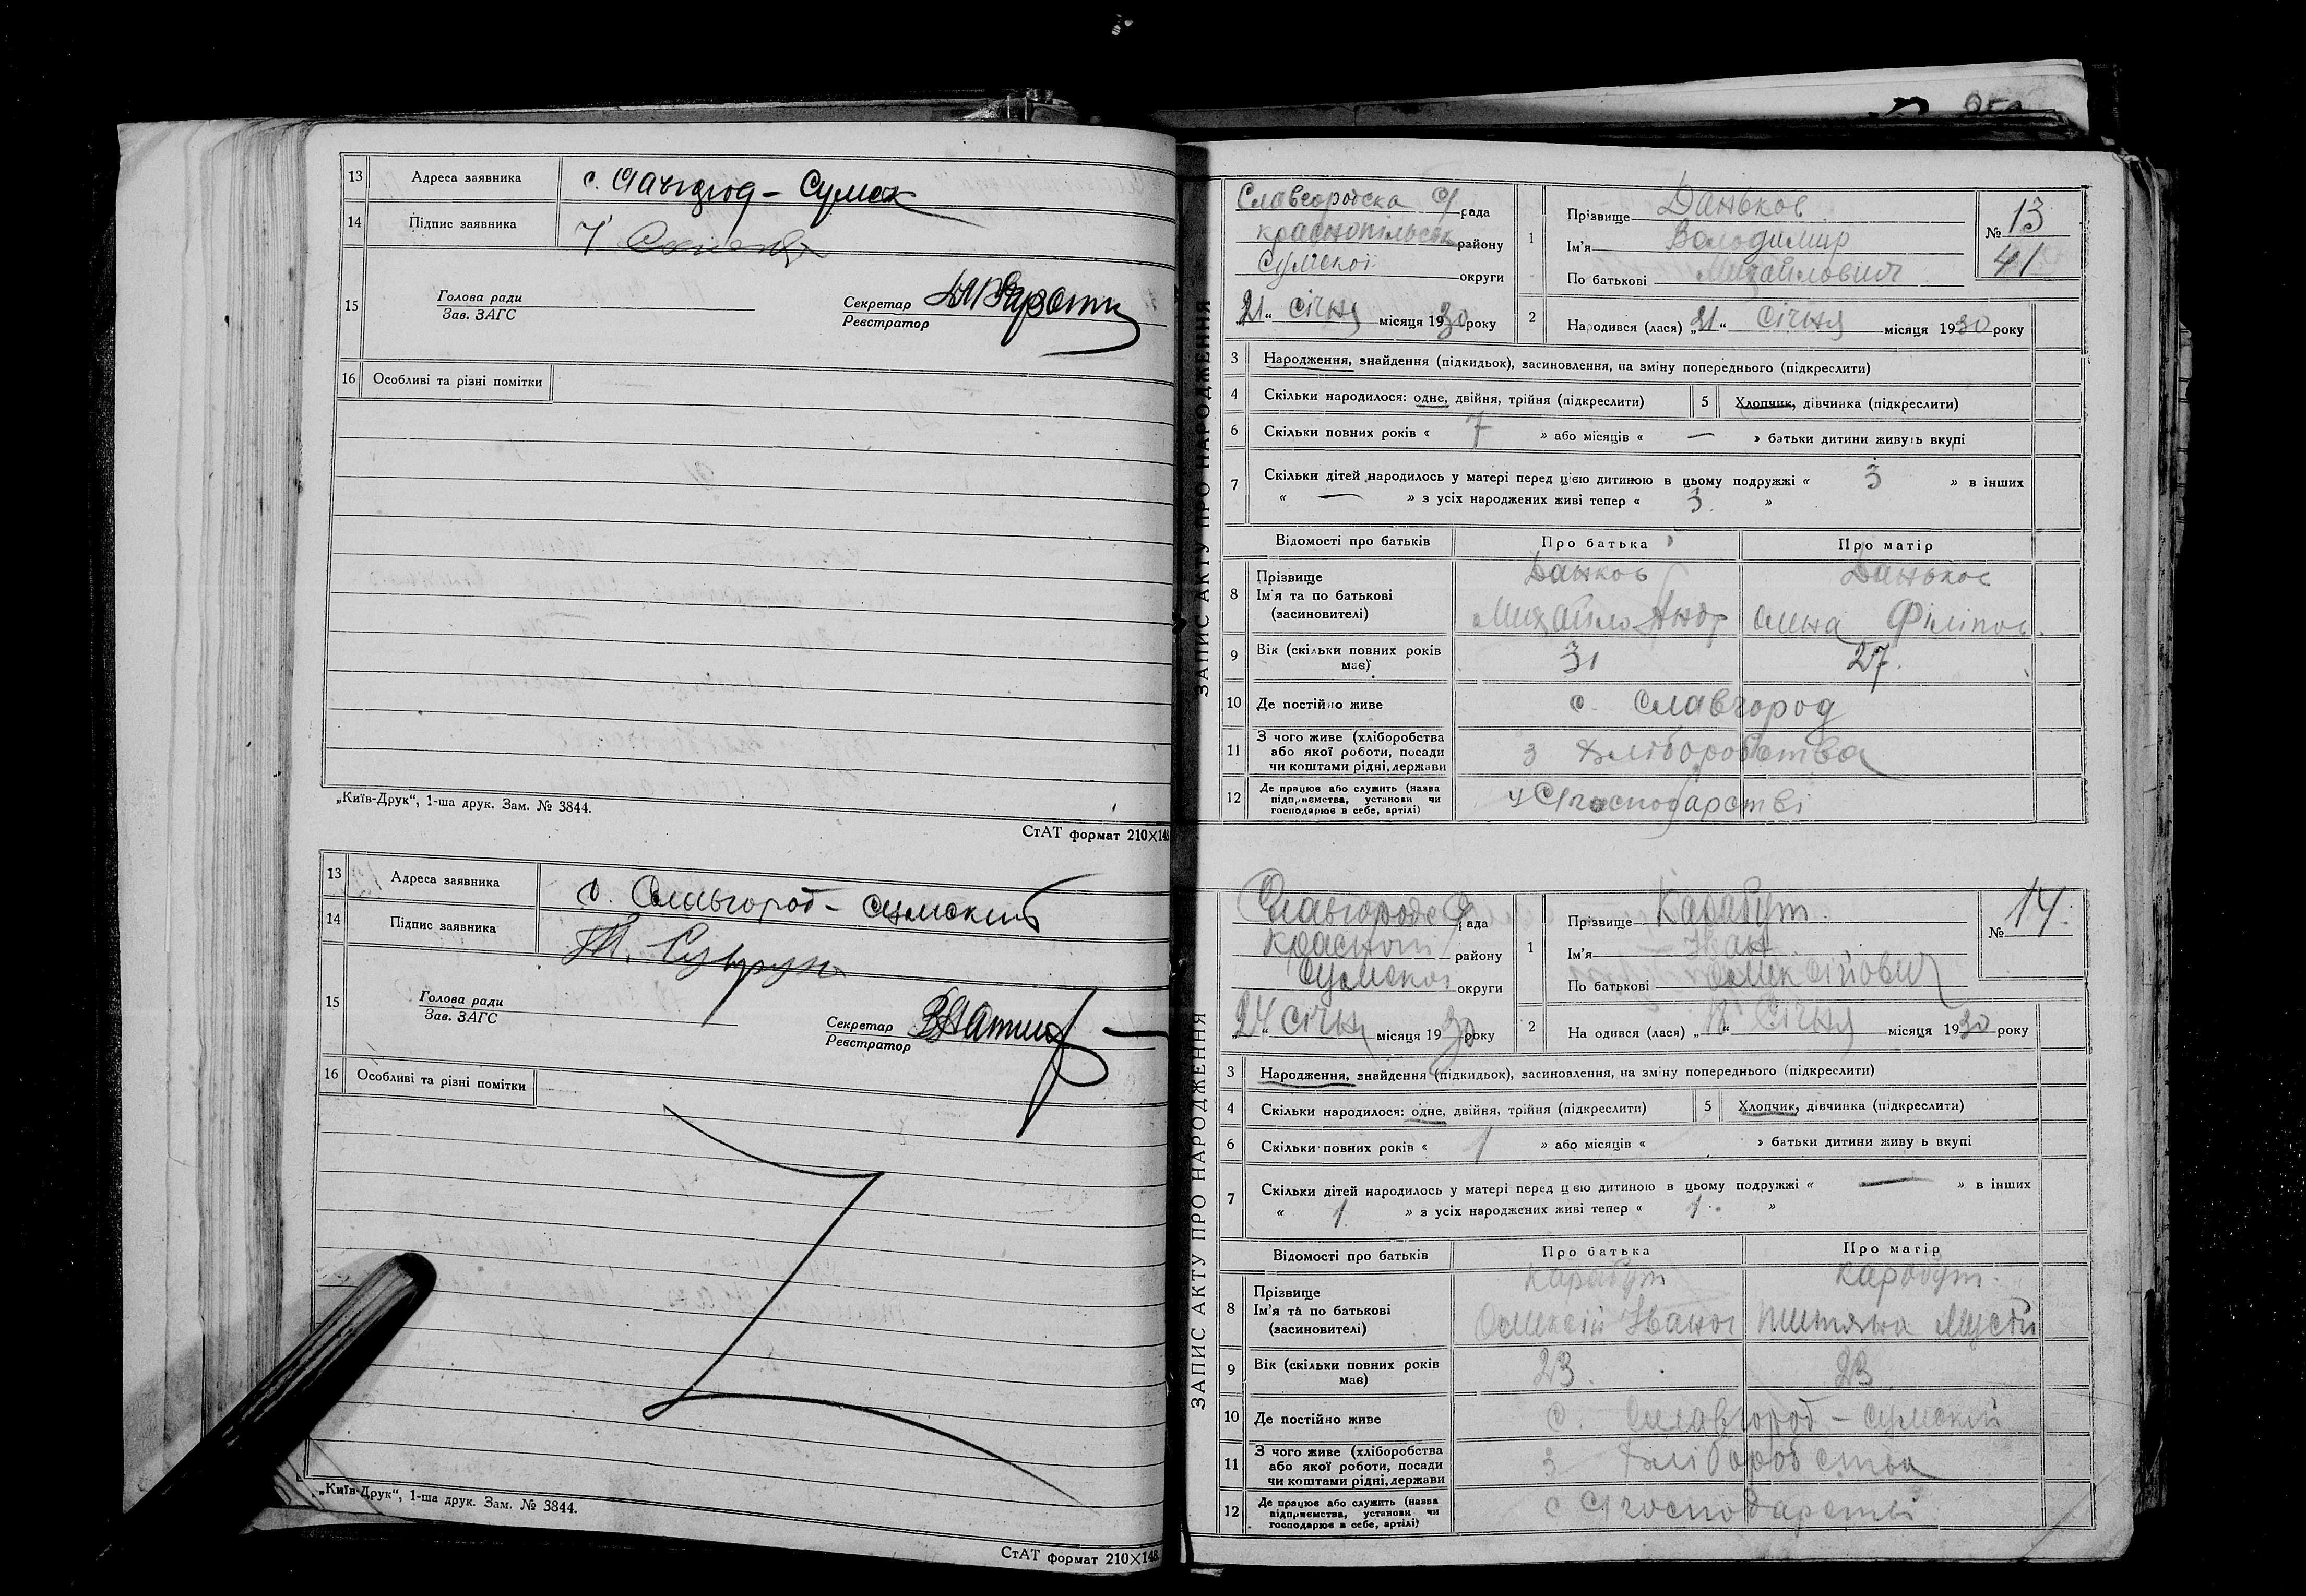 13 Адреса заявника с. Сумск
14 Підпис заявника
15 Голова ради
Зав. ЗАГС
Секретар
Реєстратор
16 Особливі та різні помітки
„Київ-Друк“, 1-ша друк. Зам. № 3844.
СтАТ формат 210×148
13 Адреса заявника с. Славгород - Сумский
14 Підпис заявника
15 Голова ради
Зав. ЗАГС
Секретар
Реєстратор
16 Особливі та різні помітки
„Київ-Друк“, 1-ша друк. Зам. № 3844.
СтАТ формат 210×148.
ЗАПИС АКТУ ПРО НАРОДЖЕННЯ
Славгородска С/рада
краснопільськ району
Сумскої округи
21 “ Січня місяця 1930 року
1 Прізвище Даньков
Ім'я Володимир
По батькові Михайлович
№ 13
41
2 Народився (лася) „21“ Січня місяця 1930 року
3 Народження, знайдення (підкидьок), засиновлення, на зміну попереднього (підкреслити)
4 Скільки народилося: одне, двійня, трійня (підкреслити) 5 Хлопчик, дівчинка (підкреслити)
6 Скільки повних років « 7 » або місяців « — » батьки дитини живуть вкупі
7 Скільки дітей народилось у матері перед цією дитиною в цьому подружжі « 3 » в інших
« — » з усіх народжених живі тепер « 3. »
Відомості про батьків Про батька Про матір
8 Прізвище
Ім'я та по батькові
(засиновителі)
Даньков
Михайло Анд
Даньков
Філіпов.
9 Вік (скільки повних років
має) 31 27.
10 Де постійно живе с. Славгород
11 З чого живе (хліборобства
або якої роботи, посади
чи коштами рідні, держави
з хліборобства
12 Де працює або служить (назва
підприємства, установи чи
господарює в себе, артілі)
у С/господарстві
ЗАПИС АКТУ ПРО НАРОДЖЕННЯ
Славгородс С/рада
Краснопіл району
Сумскої округи
24 “ Січня місяця 1930 року
1 Прізвище Карабут.
Ім'я Іван
По батькові Олексійович
№ 14.
2 На одився (лася) „18“ Січня місяця 1930 року
3 Народження, знайдення (підкидьок), засиновлення, на зміну попереднього (підкреслити)
4 Скільки народилося: одне, двійня, трійня (підкреслити) 5 Хлопчик, дівчинка (підкреслити)
6 Скільки повних років « 1 » або місяців « » батьки дитини живу ь вкупі
7 Скільки дітей народилось у матері перед цією дитиною в цьому подружжі « — » в інших
« 1. » з усіх народжених живі тепер « 1. »
Відомості про батьків Про батька Про матір
8 Прізвище
Ім'я та по батькові
(засиновителі)
Карабут
Олексій Іванов
Карабут.
9 Вік (скільки повних років
має) 23. 23
10 Де постійно живе с. Славгород - Сумский
11 З чого живе (хліборобства
або якої роботи, посади
чи коштами рідні, держави
з хліборобства
12 Де працює або служить (назва
підприємства, установи чи
господарює в себе, артілі)
с С/господарстві